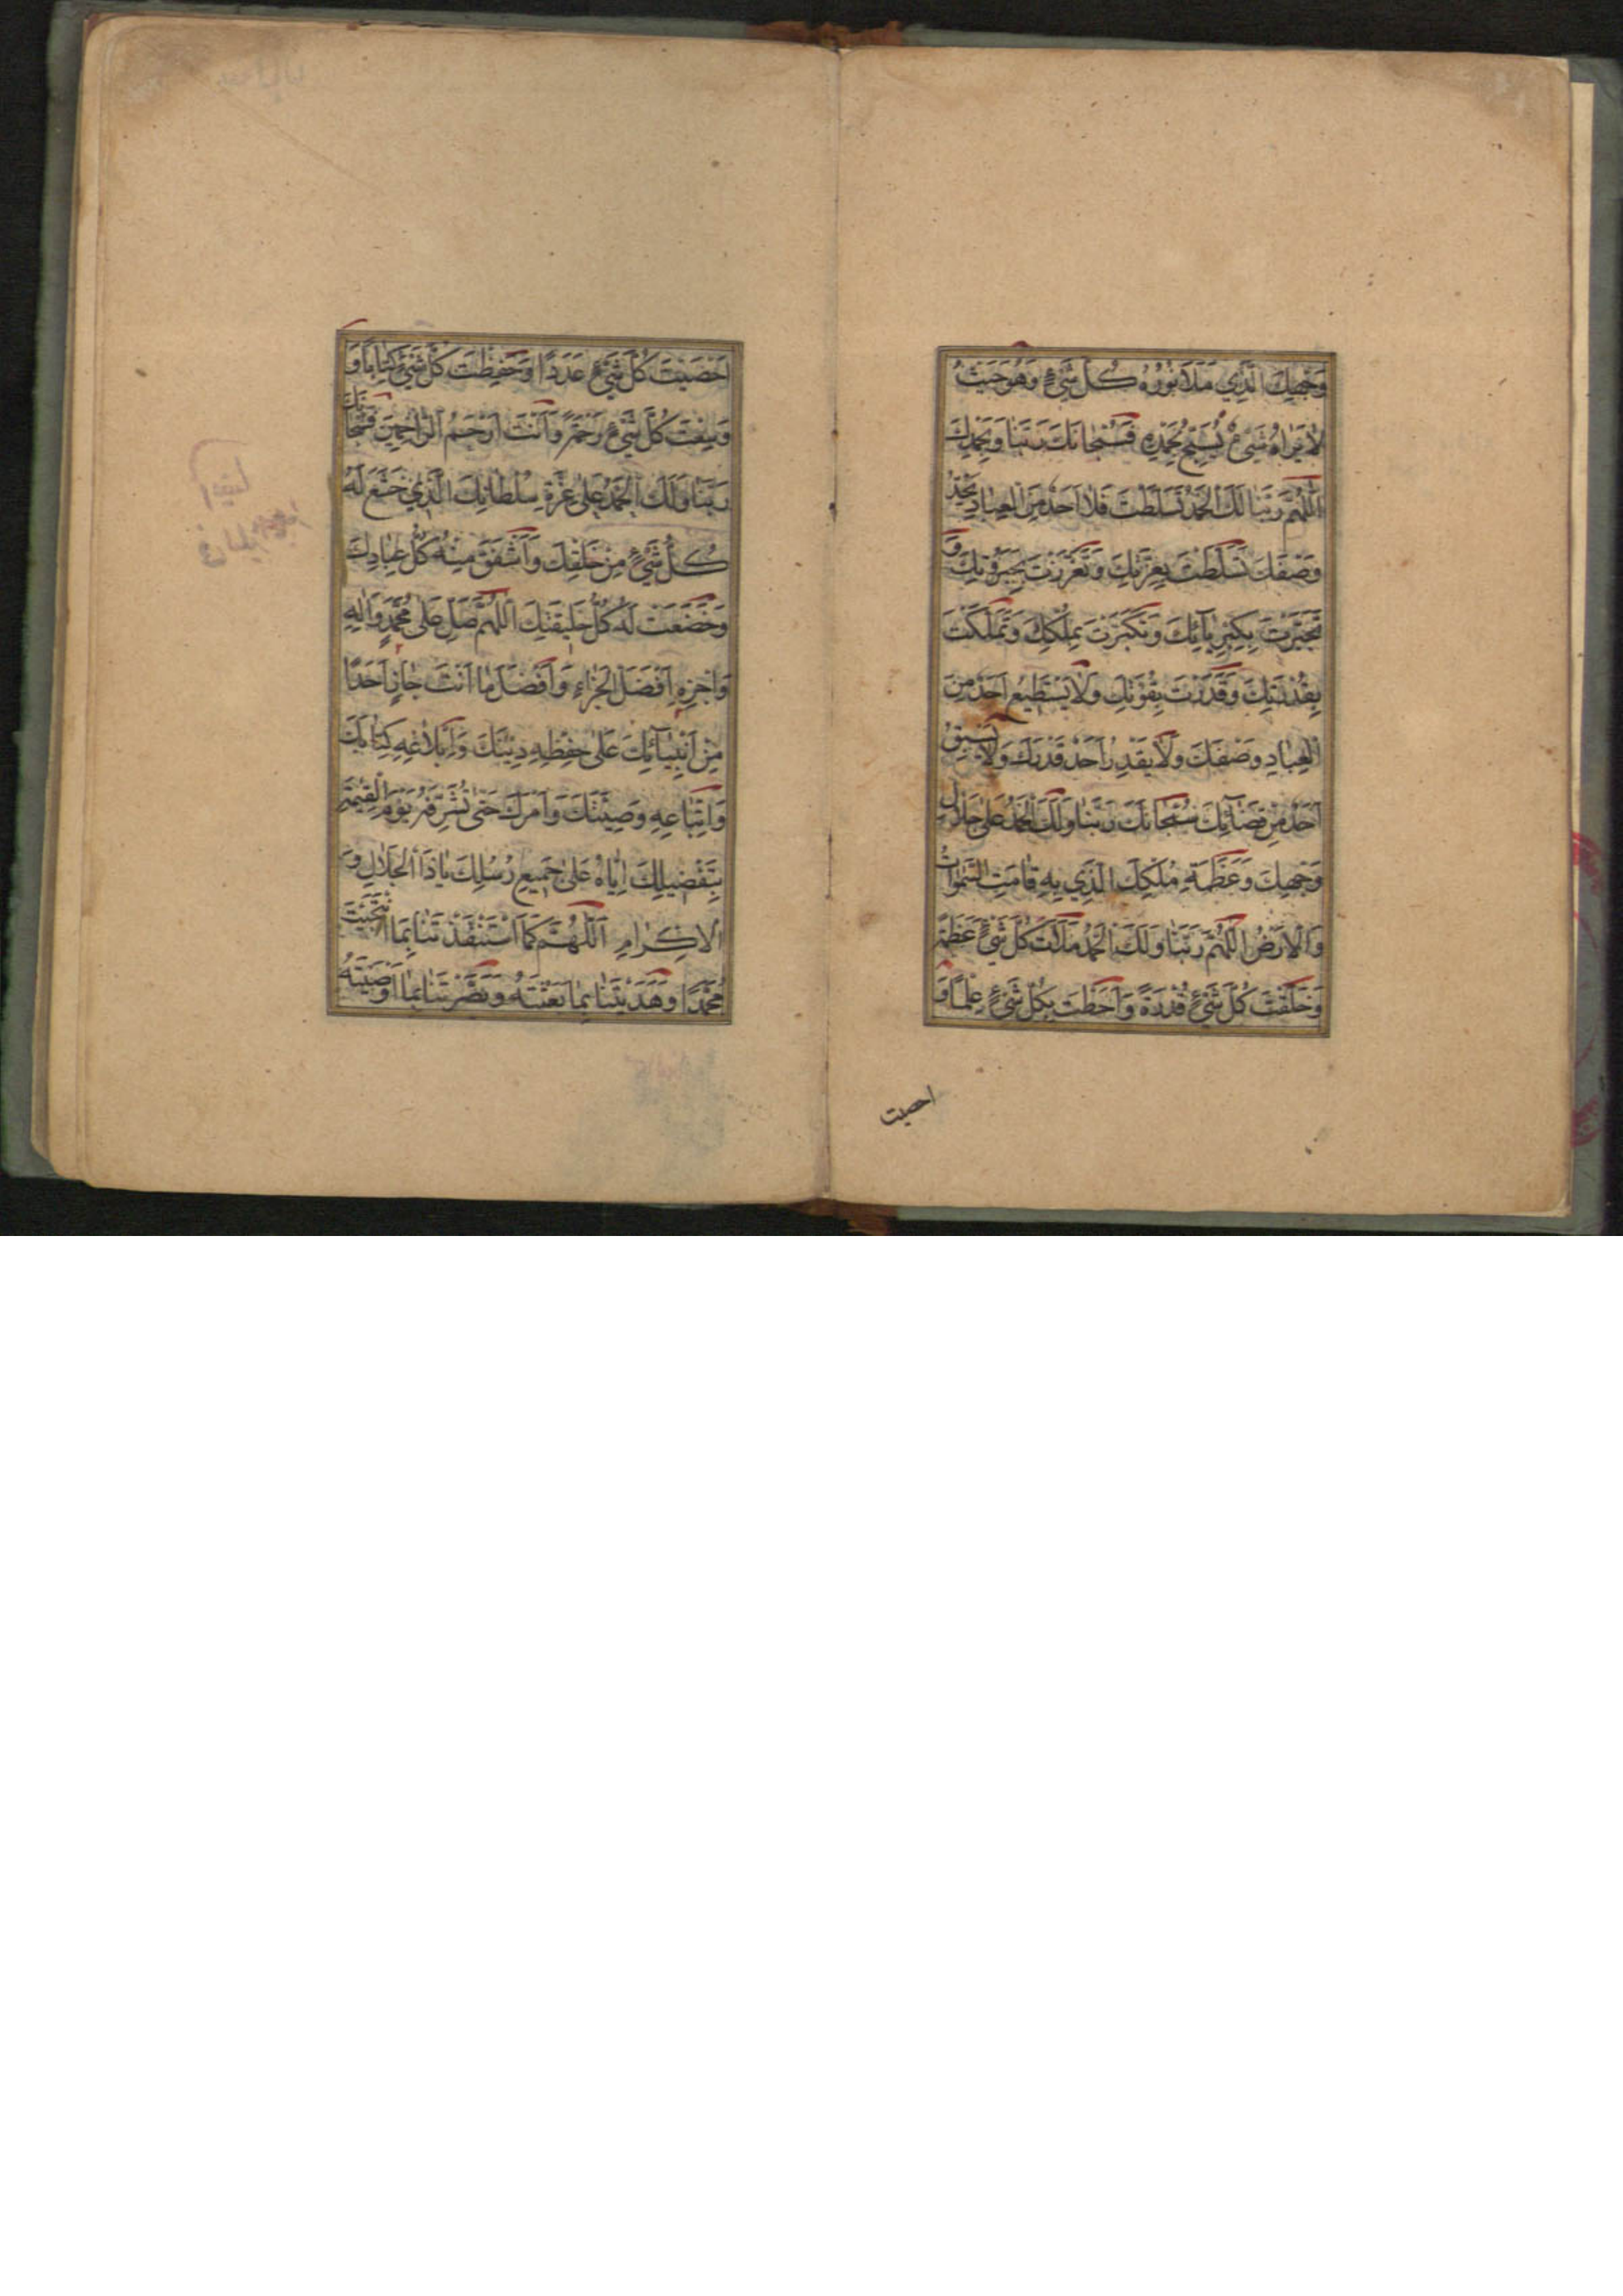 وَجْهِكَ الَّذِي مَلَأَ نُورُهُ كُلَّ شَيْءٍ وَهُوَ حَيْثُ
لَا يَرَاهُ شَيْءٌ يُسَبِّحُ بِحَمْدِهِ فَسُبْحَانَكَ رَبَّنَا وَبِحَمْدِكَ
اَللّٰهُمَّ رَبَّنَا لَكَ الْحَمْدُ تَسَلَّطْتَ فَلَا اَحَدٌ مِنَ الْعِبَادِ يَحُدُّ
وَصْفَكَ تَسَلَّطْتَ بِعِزَّتِكَ وَتَعَزَّزْتَ بِجَبَرُوتِكَ وَ
تَجَبَّرْتَ بِكِبْرِيَائِكَ وَتَكَبَّرْتَ بِمُلْكِكَ وَتَمَلَّكْتَ
بِقُدْرَتِكَ وَقَدَرْتَ بِقُوَّتِكَ وَلَا يَسْتَطِيعُ اَحَدٌ مِنَ
الْعِبَادِ وَصْفَكَ وَلَا يَقْدِرُ اَحَدٌ قَدْرَكَ وَلَا يَسْبِقُ
اَحَدٌ مِنْ قَضَائِكَ سُبْحَانَكَ رَبَّنَا وَلَكَ الْحَمْدُ عَلَى جَلَالِ
وَجْهِكَ وَعَظَمَةِ مُلْكِكَ الَّذِي بِهِ قَامَتِ السَّمٰوَاتُ
وَالْاَرْضُ اللّٰهُمَّ رَبَّنَا وَلَكَ الْحَمْدُ مَلَأْتَ كُلَّ شَيْءٍ عَظَمَةً
وَخَلَقْتَ كُلَّ شَيْءٍ قُدْرَةً وَاَحَطْتَ بِكُلِّ شَيْءٍ عِلْمًا وَ
احصيت
اَحْصَيْتَ كُلَّ شَيْءٍ عَدَدًا وَحَفِظْتَ كُلَّ شَيْءٍ كِتَابًا وَ
وَسِعْتَ كُلَّ شَيْءٍ رَحْمَةً وَاَنْتَ اَرْحَمُ الرَّاحِمِينَ فَسُبْحَانَكَ
رَبَّنَا وَلَكَ الْحَمْدُ عَلَى عِزَّةِ سُلْطَانِكَ الَّذِي خَشَعَ لَهُ
كُلُّ شَيْءٍ مِنْ خَلْقِكَ وَاَشْفَقَ مِنْهُ كُلُّ عِبَادِكَ
وَخَضَعَتْ لَهُ كُلُّ خَلِيقَتِكَ اَللّٰهُمَّ صَلِّ عَلَى مُحَمَّدٍ وَاٰلِهِ
وَاجْزِهِ اَفْضَلَ الْجَزَاءِ وَاَفْضَلَ مَا اَنْتَ جَازٍ اَحَدًا
مِنْ اَنْبِيَائِكَ عَلَى حِفْظِهِ دِينَكَ وَاِبْلَاغِهِ كِتَابَكَ
وَاتِّبَاعِهِ وَصِيَّتَكَ وَاَمْرَكَ حَتَّى تُشَرِّفَهُ يَوْمَ الْقِيٰمَةِ
بِتَفْضِيلِكَ اِيَّاهُ عَلَى جَمِيعِ رُسُلِكَ يَا ذَا الْجَلَالِ وَ
الْاِكْرَامِ اَللّٰهُمَّ كَمَا اسْتَنْقَذْتَنَا بِمَا انْتَجَبْتَ
مُحَمَّدًا وَهَدَيْتَنَا بِمَا بَعَثْتَهُ وَبَصَّرْتَنَا بِمَا اَوْصَيْتَهُ